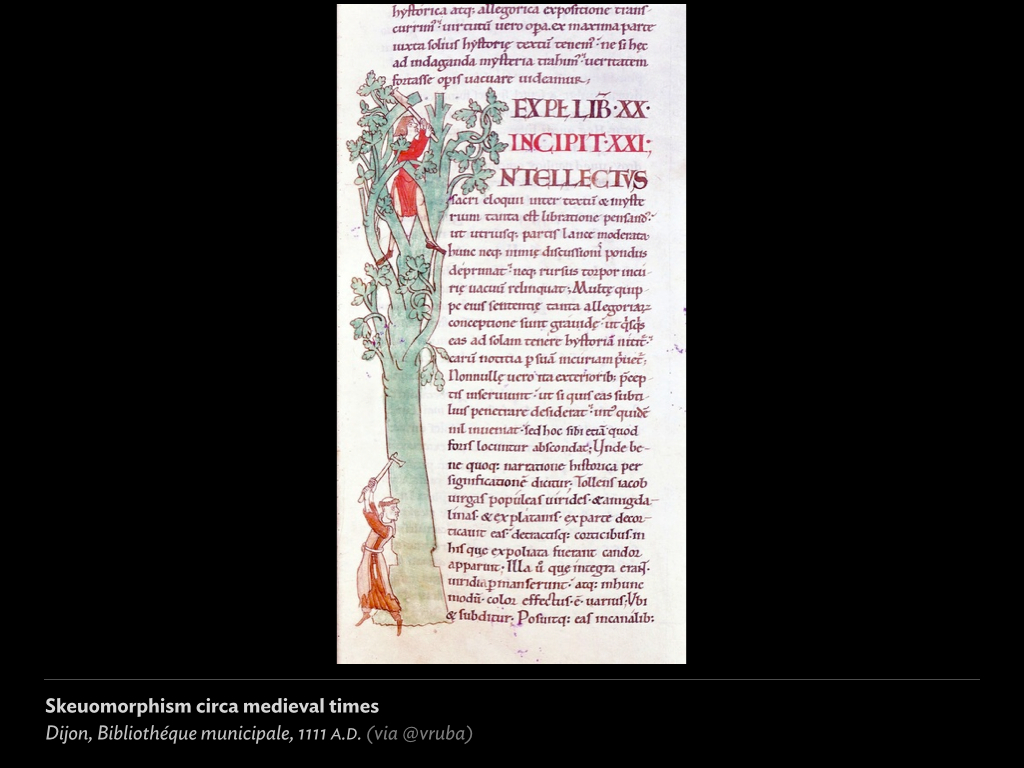 hystorica atq; allegorica expositione trans-
currim᷒· uirtutū uero opa. ex maxima parte
iuxta solius hystorię textū tenem᷒· ne si hęc
ad indaganda mysteria trahim᷒· ueritatem
fortasse opis uacuare uideamur;
EXPŁ LIB̄·XX·
INCIPIT·XXI;
NTELLECTVS
sacri eloquii inter textū & myste
rium tanta est libratione pensand᷒·
ut utriusq; partis lance moderata
hunc neq; nimię discussioni pondus
deprimat· neq; rursus torpor incu-
rię uacuū relinquat; Multę quip
pe eius sententię tanta allegoriaꝝ
conceptione sunt grauidę· ut q̄sq̄s
eas ad solam tenere hystoriā nitit᷒·
earū notitia p suā incuriam p̄uet᷒;
Nonnullę uero ita exteriorib; p̄cep
tis inseruiunt· ut si quis eas subti-
lius penetrare desiderat· int᷒ quidē
nil inueniat· sed hoc sibi etiā quod
foris locuntur abscondat; Unde be-
ne quoq; narratione historica per
significationē dicitur; Tollens iacob
uirgas populeas uirides· & amigda-
linas· & ex platanis· ex parte decor-
ticauit eas· detractisq; corticibus· in
his que expoliata fuerant candor
apparuit; Illa ū que integra erāt·
uiridia pmanserunt· atq; in hunc
modū· color effectus·ē· uarius; Vbi
& subditur; Posuitq; eas in canalib;
Skeuomorphism circa medieval times
Dijon, Bibliothéque municipale, 1111 A.D. (via @vruba)